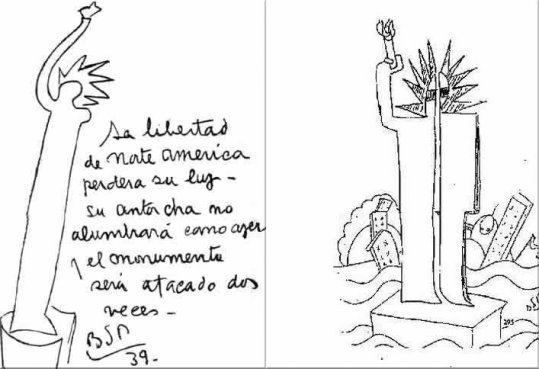 La libertad
de norte america
perdera su luz -
su antorcha no
alumbrará como ayer
y el monumento
será atacado dos
veces -
BSP
39.
BSP